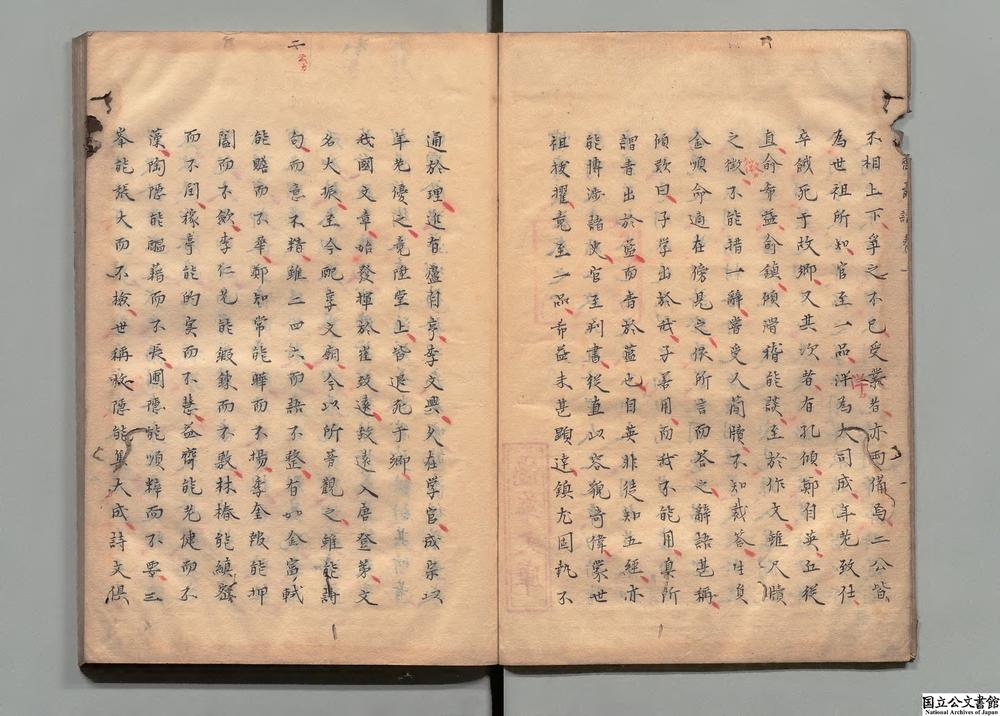 不相上下爭之不已受業者亦両備焉二公皆
為世祖所知官至一品泮為大司成年老致仕
卒餓死于故郷又其次者有孔傾鄭自英丘從
直俞希益俞鎮傾滑稽能談至於作文雖尺牘
之微不能措一辭嘗受人簡牘不知裁答
金順命適在傍見之供所言而答之辭語甚稱
傾歎曰子學出於我子善用而我不能用真所
謂青出於藍而青於藍也自英非徒知五經亦
能博渉諸史官至判書從直以容貌奇偉蒙世
祖拔擢竟至一品希益未甚顕達鎮尤固執不
通於理進有盧自亨李文興久在学官成宗以
年老優之竟陞堂上皆退死于郷
我國文章始發揮於崔致遠致遠入唐登第文
名大振至今配享文廟今以所著觀之雖能詩
句而意不精雖工四六而語不整有如金富軾
能贍而不華鄭知常能曄而不揚李奎報能押
闔而不歛李仁老能鍛錬而不敷林椿能縝密
而不関稼亭能的実而不慧益齊能老健而不
藻陶隠能醞藉而不長圃隠能順粹而不要三
峯能張大而不検世稱牧隠能集大成詩文倶
微
泮
二
国立公文書館
National Archives of Japan